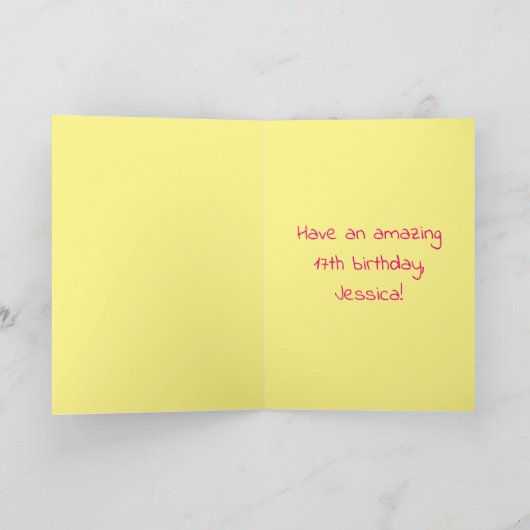 Have an amazing
17th birthday,
Jessica!